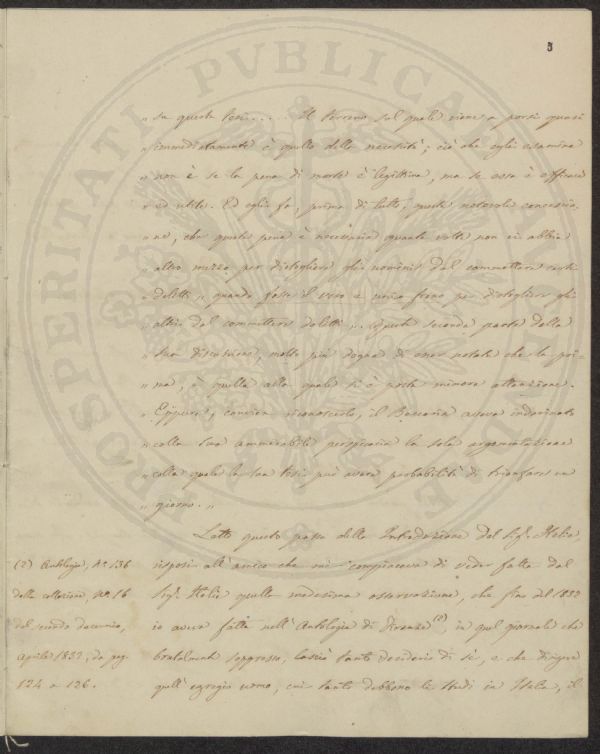 5
PROSPERITATI PVBLICAE AVGENDAE
„ su questa tesi..... Il terreno sul quale viene a porsi quasi
„ immediatamente è quello della necessità; ciò che egli esamina
„ non è se la pena di morte è legittima, ma se essa è efficace
„ ed utile. Ed egli fa, prima di tutto, questa notevole concessio-
„ ne, che questa pena è necessaria quante volte non vi abbia
„ altro mezzo per distogliere gli uomini dal commettere certi
„ delitti „ quando fosse il vero e unico freno per distogliere gli
„ altri dal commettere delitti „. Questa seconda parte della
„ sua discussione, molto più degna di esser notata che la pri-
„ ma, è quella alla quale si è posta minore attenzione.
„ Eppure, convien riconoscerlo, il Beccaria aveva indovinato
„ colla sua ammirabile perspicacia la sola argomentazione
„ colla quale la sua tesi può avere probabilità di trionfare un
„ giorno. „
Letto questo passo della Introduzione del Sig.r Helie,
risposi all'amico che mi compiaceva di veder fatta dal
Sig.r Helie quella medesima osservazione, che fino dal 1832
io aveva fatta nell'Antologia di Firenze (2) in quel giornale che
brutalmente soppresso, lasciò tanto desiderio di sè, e che dirigeva
quell'egregio uomo, cui tanto debbono li studi in Italia, il
(2) Antologia, N.° 136
della collezione, N.° 16
del secondo decennio,
Aprile 1832, da pag.
124 a 126.